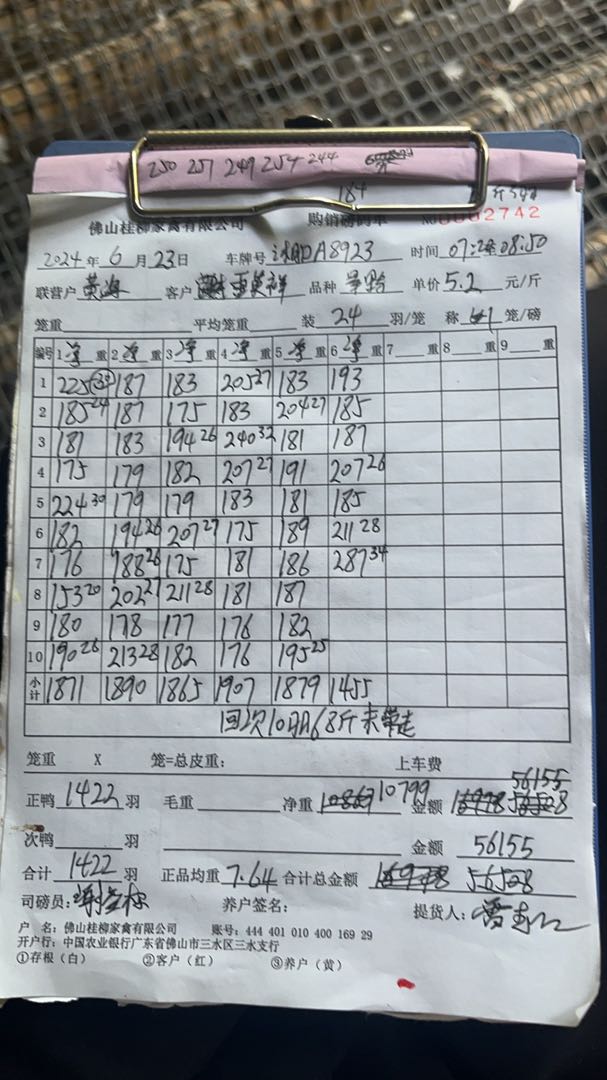 250 251 249 254 244
184
佛山桂柳家禽有限公司 购销磅码单 № 0002742
2024 年 6 月 23 日 车牌号 A8923 时间 07:20至08:50
联营户 黄海 客户 雷英祥 品种 单价 5.2 元/斤
笼重 平均笼重 装 24 羽/笼 称 笼/磅
编号 1 净 重 2 净 重 3 净 重 4 净 重 5 净 重 6 净 重 7 重 8 重 9 重
1 225 30 187 183 205 27 183 193
2 185 24 187 175 183 204 27 185
3 181 183 194 26 240 32 181 187
4 175 179 182 207 27 191 207 26
5 224 30 179 179 183 181 185
6 182 194 26 207 27 175 189 211 28
7 176 188 26 175 181 186 287 34
8 153 20 202 27 211 28 181 187
9 180 178 177 176 182
10 190 26 213 28 182 176 195 25
小计 1871 1890 1865 1907 1879 1455
回次10只68斤未带走
笼重 X 笼=总皮重: 上车费
56155
正鸭 1422 羽 毛重 净重 10867 10799 金额 56528
次鸭 羽 金额 56155
合计 1422 羽 正品均重 7.64 合计总金额 56528
司磅员: 养户签名: 提货人:
户 名: 佛山桂柳家禽有限公司 账号: 444 401 010 400 169 29
开户行: 中国农业银行广东省佛山市三水区三水支行
①存根（白） ②客户（红） ③养户（黄）